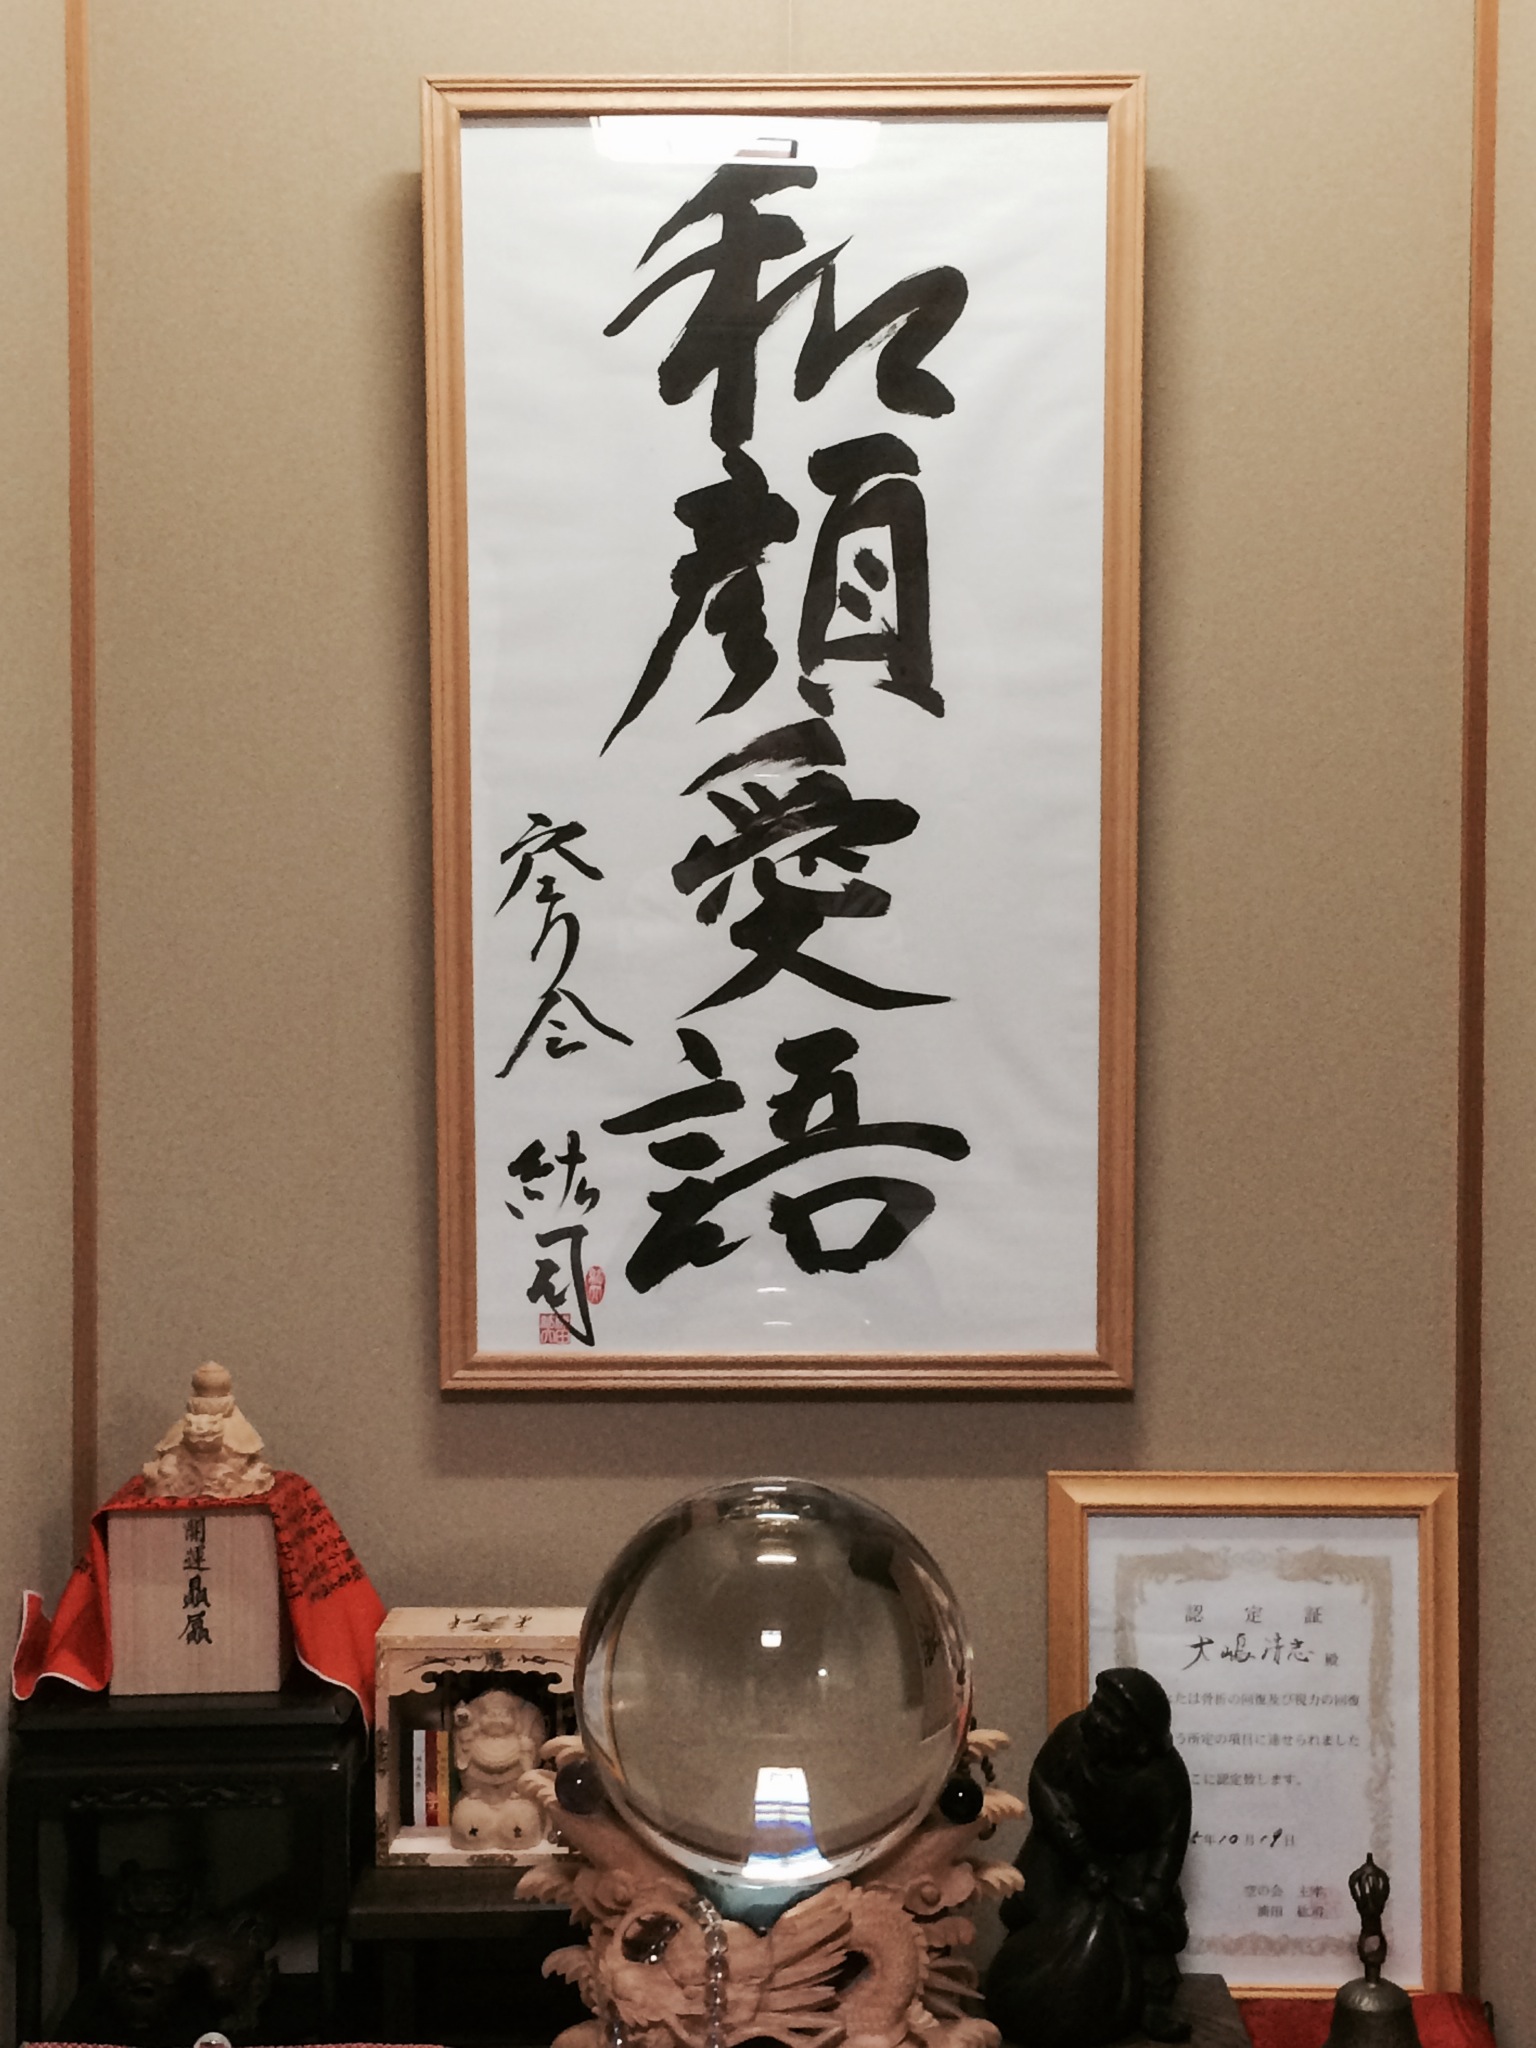 和顔愛語
空の会
紘司
開運
認定証
大嶋清志殿
たは骨折の回復及び視力の回復
う所定の項目に達せられました
こに認定致します。
年10月19日
空の会 主宰